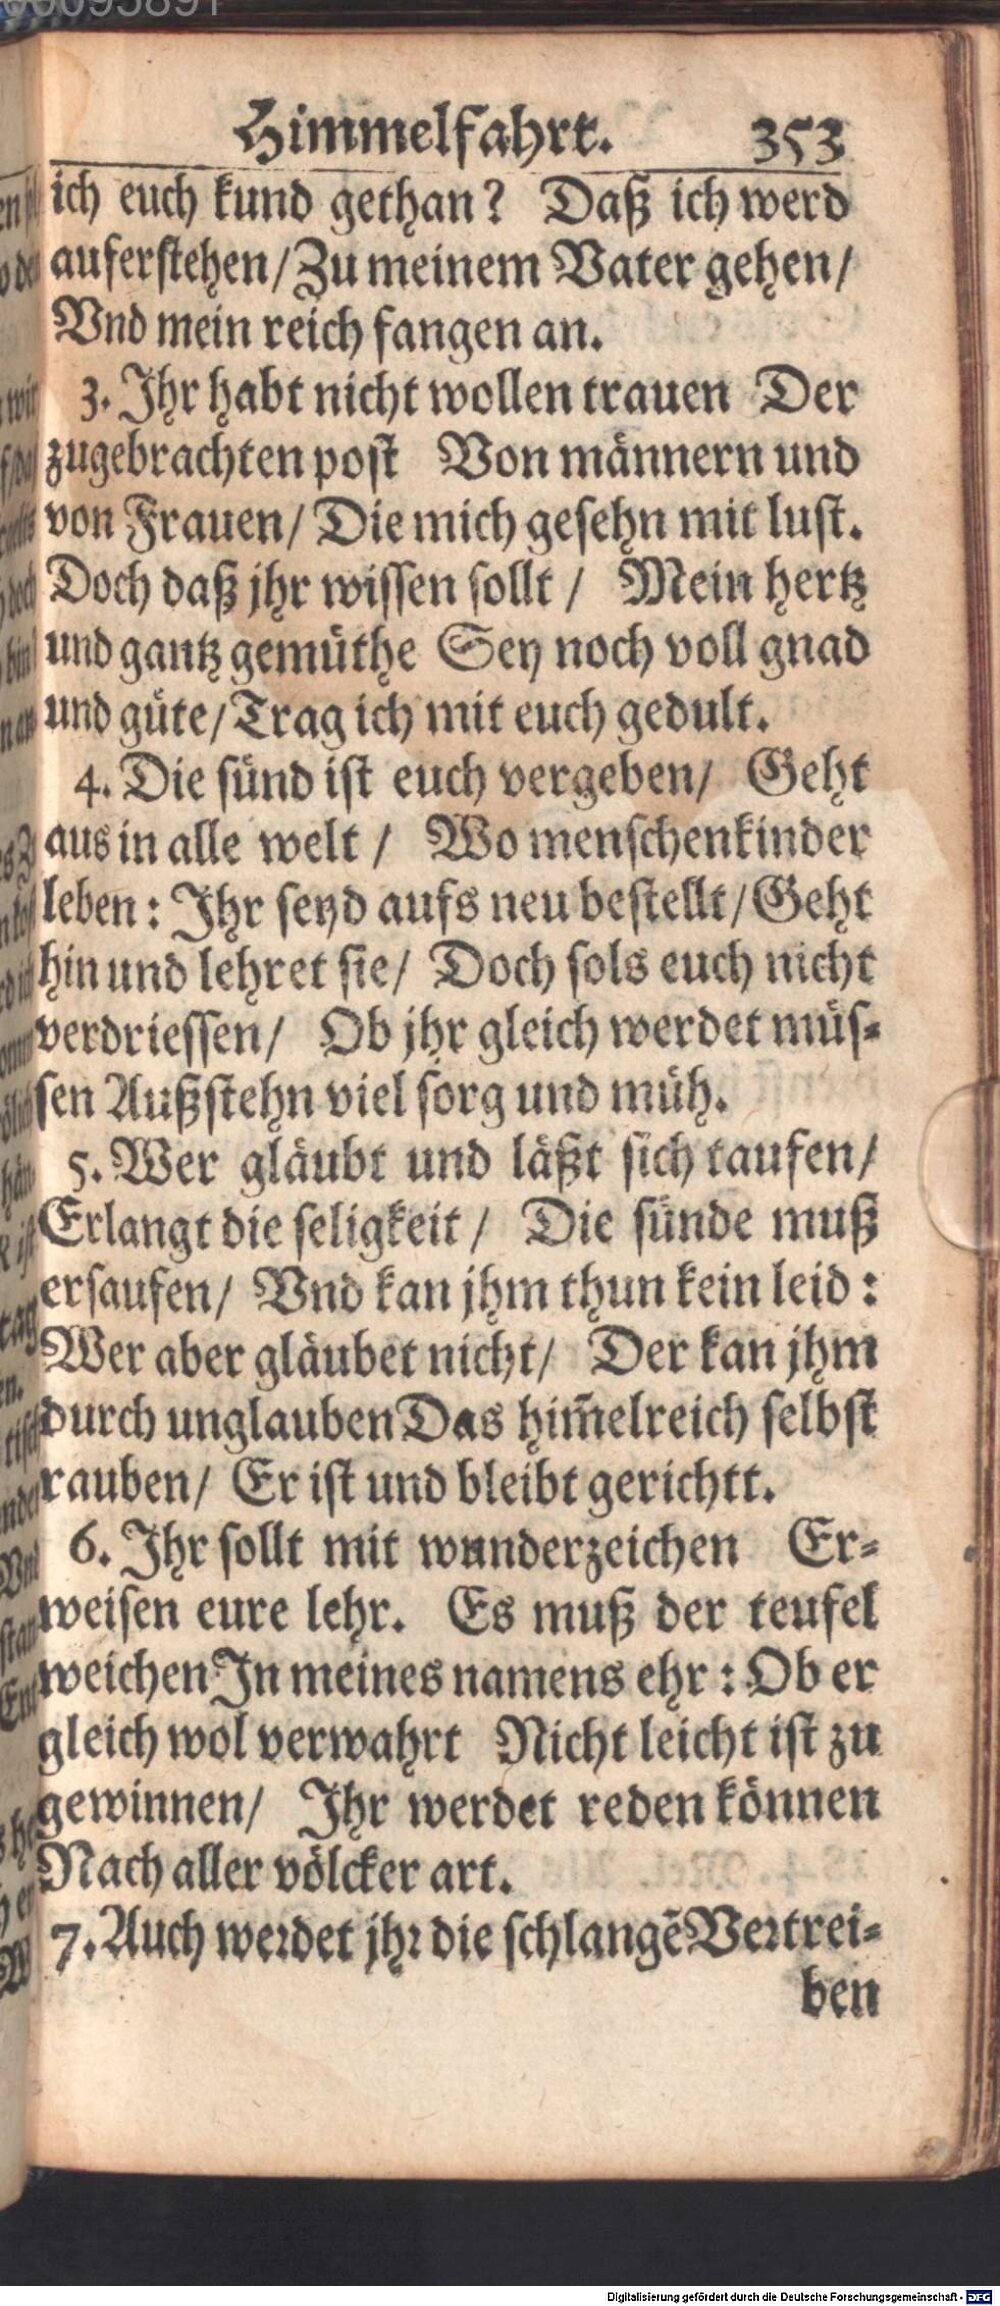 Himmelfahrt. 353
ich euch kund gethan? Daß ich werd
auferstehen/Zu meinem Vater gehen/
Vnd mein reich fangen an.
3. Ihr habt nicht wollen trauen Der
zugebrachten post Von männern und
von Frauen/ Die mich gesehn mit lust.
Doch daß jhr wissen sollt / Mein hertz
und gantz gemüthe Sey noch voll gnad
und güte/Trag ich mit euch gedult.
4. Die sünd ist euch vergeben/ Geht
aus in alle welt / Wo menschenkinder
leben: Ihr seyd aufs neu bestellt/Geht
hin und lehret sie/ Doch sols euch nicht
verdriessen/ Ob jhr gleich werdet müs-
sen Außstehn viel sorg und müh.
5. Wer gläubt und läßt sich taufen/
Erlangt die seligkeit / Die sünde muß
ersaufen/ Vnd kan jhm thun kein leid:
Wer aber gläubet nicht/ Der kan jhm
durch unglauben Das him̃elreich selbst
rauben/ Er ist und bleibt gerichtt.
6. Ihr sollt mit wunderzeichen Er-
weisen eure lehr. Es muß der teufel
weichen In meines namens ehr: Ob er
gleich wol verwahrt Nicht leicht ist zu
gewinnen/ Ihr werdet reden können
Nach aller völcker art.
7. Auch werdet jhr die schlangẽ Vertrei-
ben
Digitalisierung gefördert durch die Deutsche Forschungsgemeinschaft - DFG